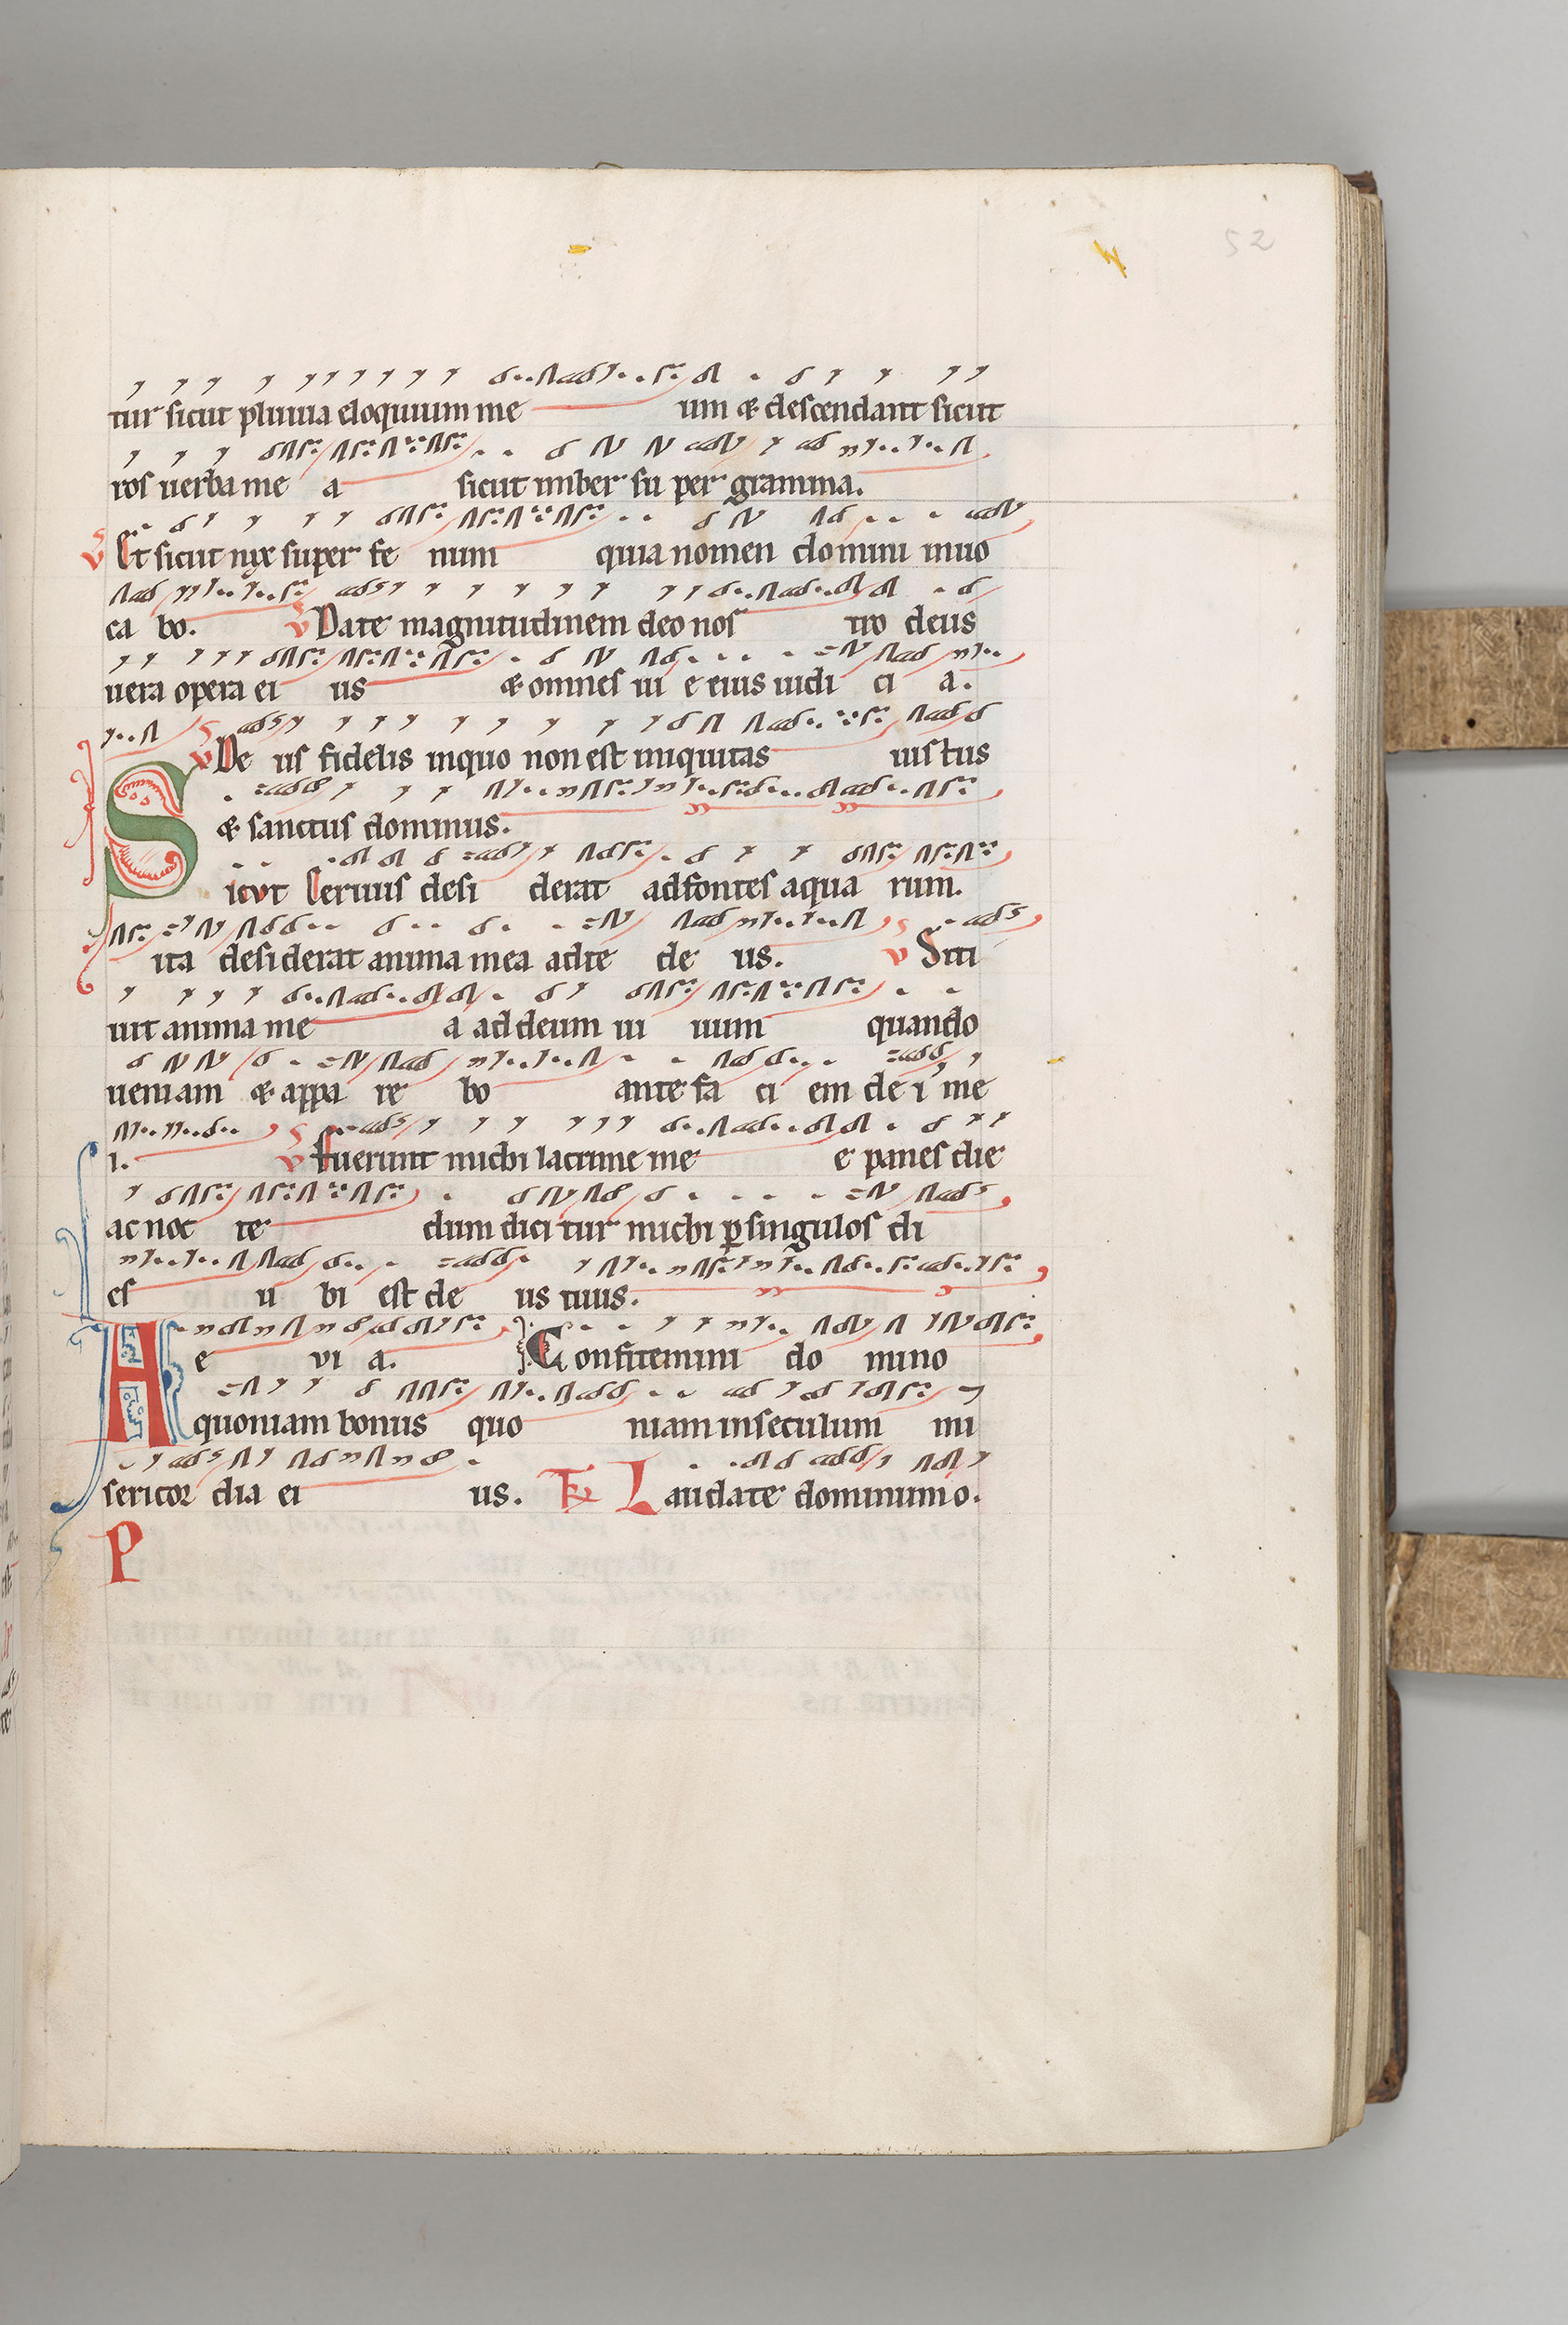 52
tur sicut pluuia eloquium me um & descendant sicut
ros uerba me a sicut imber su per gramina.
v Et sicut nix super fe num quia nomen domini inuo
ca bo. v Date magnitudinem deo nos tro deus
uera opera ei us & omnes ui e eius iudi ci a.
v De us fidelis inquo non est iniquitas iustus
& sanctus dominus.
Sicut ceruus desi derat adfontes aqua rum.
ita desiderat anima mea adte de us. v Siti
uit anima me a ad deum ui uum quando
ueniam & appa re bo ante fa ci em de i me
i. v fuerunt michi lacrime me e panes die
ac noc te dum dici tur michi ꝑ singulos di
es u bi est de us tuus.
A e vi a. Confitemini do mino
quoniam bonus quo niam inseculum mi
sericor dia ei us. Tr Laudate dominum o.
P